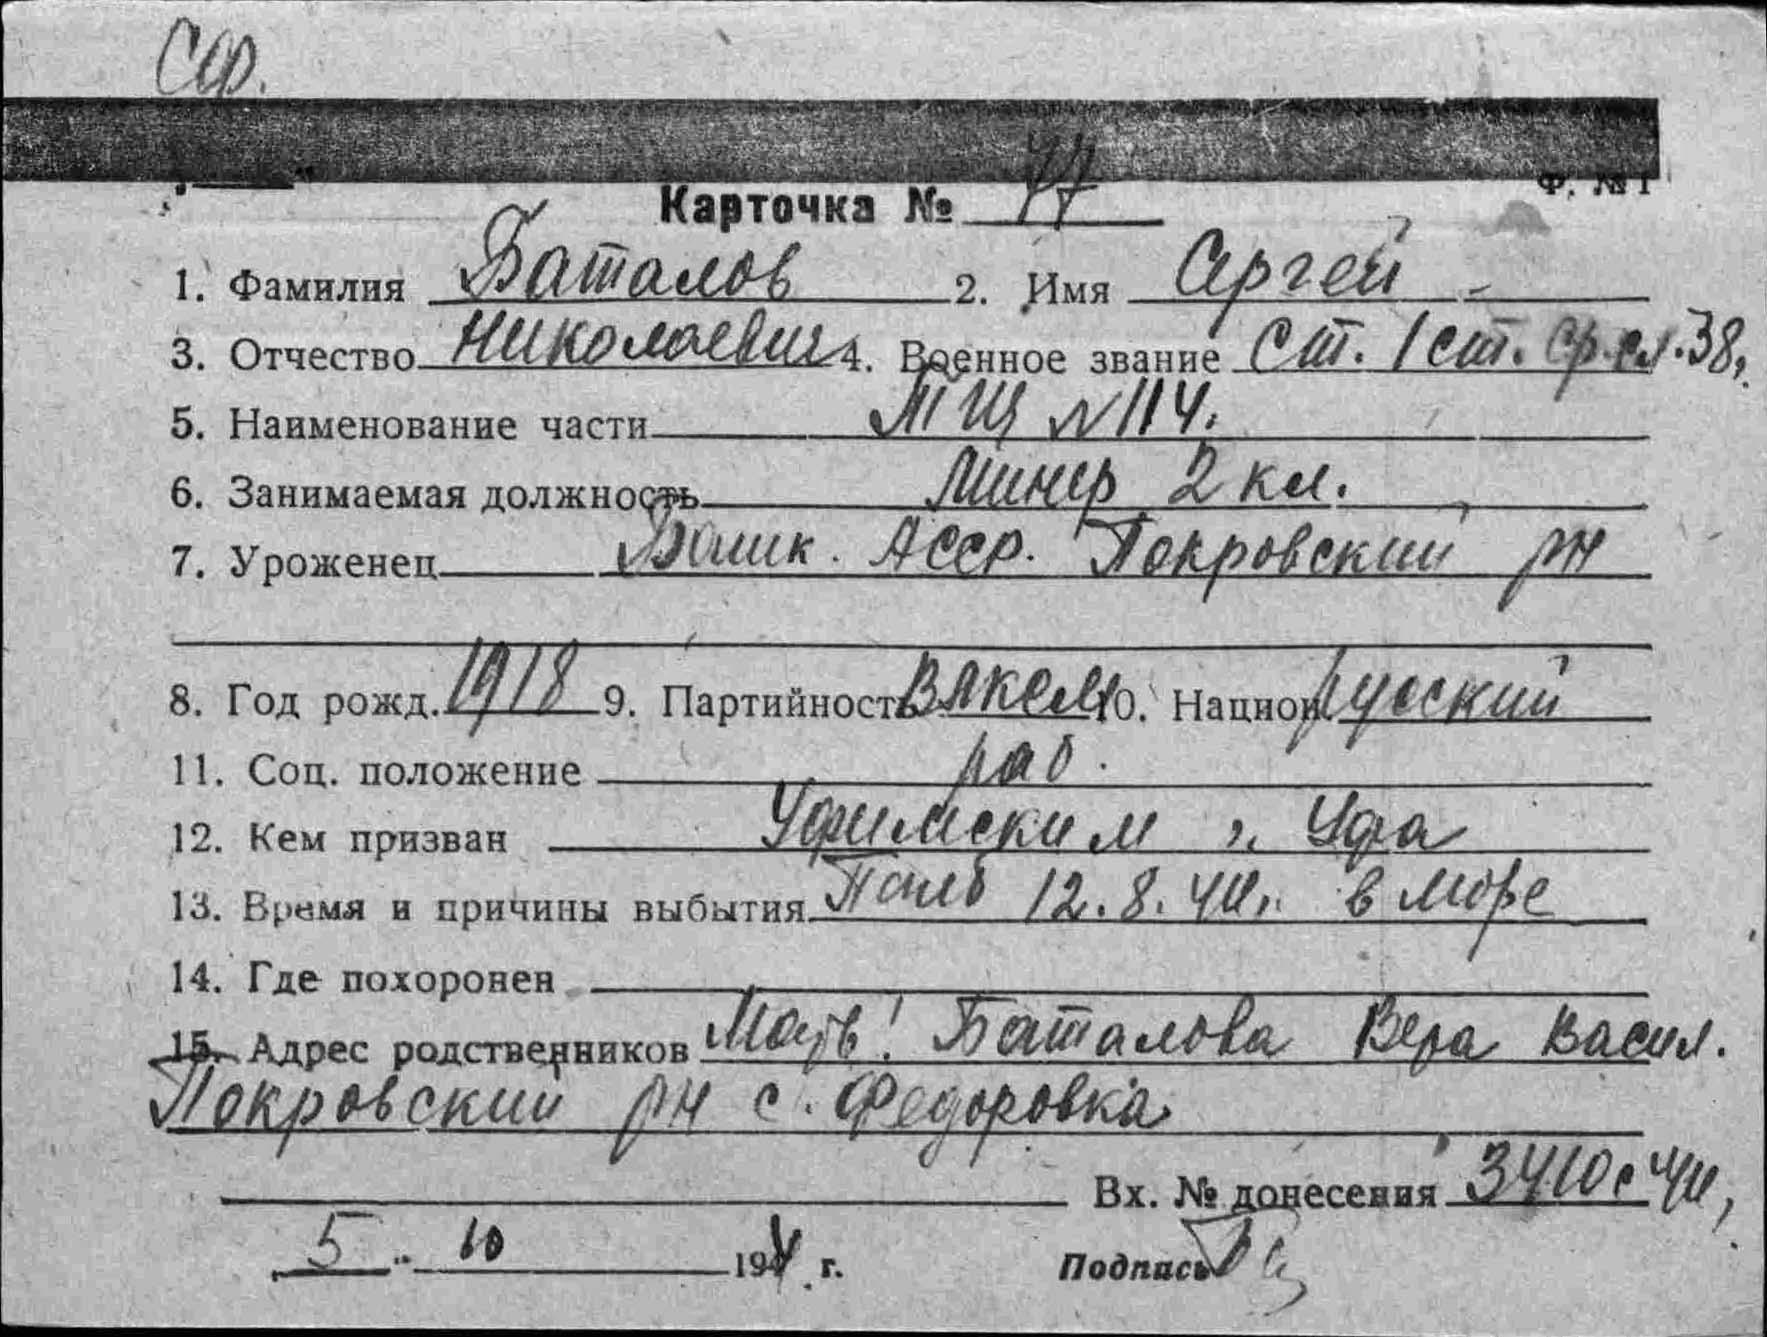 Сер.
Ф. № 1
Карточка № 47
1. Фамилия Баталов 2. Имя Сергей
3. Отчество Николаевич 4. Военное звание Ст. 1 ст. ср. сл. 38,
5. Наименование части ТЩ № 114.
6. Занимаемая должность Минер 2 кл.
7. Уроженец Башк. АССР. Покровский рн
8. Год рожд. 1918 9. Партийность ВЛКСМ 10. Национ. русский
11. Соц. положение раб.
12. Кем призван Уфимским г. Уфа
13. Время и причины выбытия Погиб 12.8.44г. в море
14. Где похоронен
15. Адрес родственников Мать! Баталова Вера Васил.
Покровский рн с. Федоровка
Вх. № донесения 3410с 44г,
5 10 1944 г. Подпись